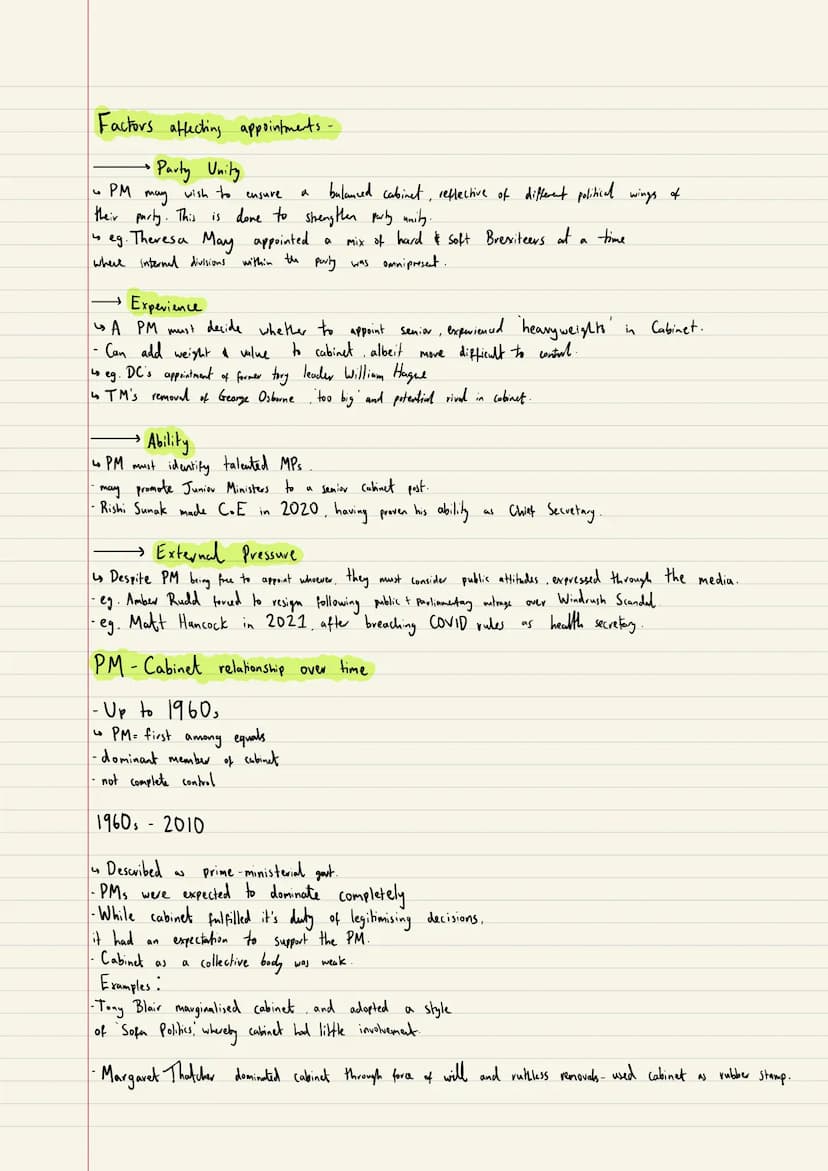 Factors affecting appointments -
→ Party Unity
↳ PM may wish to ensure a balanced cabinet, reflective of different political wings of
their party. This is done to strengthen party unity.
↳ eg. Theresa May appointed a mix of hard & soft Brexiteers at a time
where internal divisions within the party was omnipresent.
→ Experience
↳ A PM must decide whether to appoint senior, experienced 'heavyweights' in Cabinet.
- Can add weight & value to cabinet, albeit more difficult to control.
↳ eg. DC's appointment of former tory leader William Hague
↳ TM's removal of George Osborne, 'too big' and potential rival in cabinet.
→ Ability
↳ PM must identify talented MPs.
- may promote Junior Ministers to a senior cabinet post.
- Rishi Sunak made CoE in 2020, having proven his ability as Chief Secretary.
→ External Pressure
↳ Despite PM being free to appoint whoever, they must consider public attitudes, expressed through the media.
- eg. Amber Rudd forced to resign following public + Parliamentary outrage over Windrush Scandal
- eg. Matt Hancock in 2021, after breaching COVID rules as health secretary.
PM - Cabinet relationship over time
- Up to 1960s
↳ PM = first among equals
- dominant member of cabinet
- not complete control
1960s - 2010
↳ Described as prime-ministerial govt.
- PMs were expected to dominate completely
- While cabinet fulfilled it's duty of legitimising decisions,
it had an expectation to support the PM.
- Cabinet as a collective body was weak.
Examples:
- Tony Blair marginalised cabinet, and adopted a style
of 'Sofa Politics,' whereby cabinet had little involvement.
- Margaret Thatcher dominated cabinet through force of will and ruthless removals - used cabinet as rubber stamp.